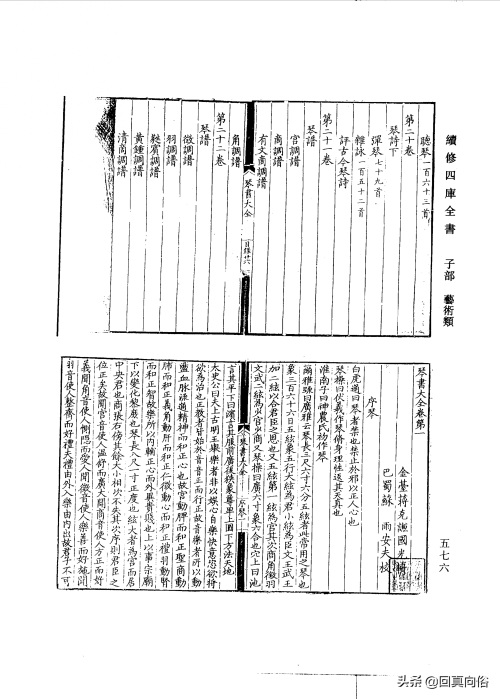 續修四庫全書 子部 藝術類
五七六
聽琴一百六十三首
第二十卷
琴詩下
彈琴七十九首
雜詠一百五十二首
評古今琴詩
第二十一卷
琴譜
宮調譜
商調譜
有文商調譜
琴書大全
目錄廿六
角調譜
第二十二卷
琴譜
徵調譜
羽調譜
蕤賓調譜
黃鍾調譜
清商調譜
琴書大全卷第一
金臺蔣克謙國光輯
巴蜀蘇雨安夫校
序琴
白虎通曰琴者禁也禁止於邪以正人心也
琴操曰伏羲作琴脩身理性返其天真也
淮南子曰神農氏初作琴
爾雅疏曰廣雅云琴長三尺六寸六分五絃者此常用之琴也
象三百六十六日五絃象五行大絃為君小絃為臣文王武王
加二絃以合君臣之恩也又五絃第一絃為宮其次商角徵羽
文武二絃為少宮少商又琴操曰廣六寸象六合也穴上曰池
琴書大全
序琴一
言其平下曰濱言其服前廣後狹象尊卑上圓下方法天地
太史公曰夫上古明王舉樂者非以娛心自樂快意恣欲將
欲為治也正教者皆始於音音正而行正故音樂者所以動
盪血脉流通精神而和正心也故宮動脾而和正聖商動
肺而和正義角動肝而和正仁徵動心而和正禮羽動腎
而和正智故樂所以内輔正心而外異貴賤也上以事宗廟
下以變化黎庶也琴長八尺一寸正度也絃大者為宮而居
中央君也商張右傍其餘大小相次不失其次序則君臣之
位正矣故聞宮音使人温舒而廣大聞商音使人方正而好
義聞角音使人惻隠而愛人聞徵音使人樂善而好施聞
羽音使人整齊而好禮夫禮由外入樂由内出故君子不可
头条 @回真向俗